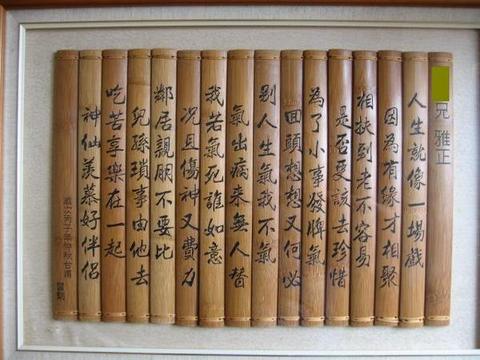 兄 雅正
人生就像一場戲
因為有緣才相聚
相扶到老不容易
是否更該去珍惜
為了小事發脾氣
回頭想想又何必
別人生氣我不氣
氣出病來無人替
我若氣死誰如意
況且傷神又費力
鄰居親朋不要比
兒孫瑣事由他去
吃苦享樂在一起
神仙羨慕好伴侶